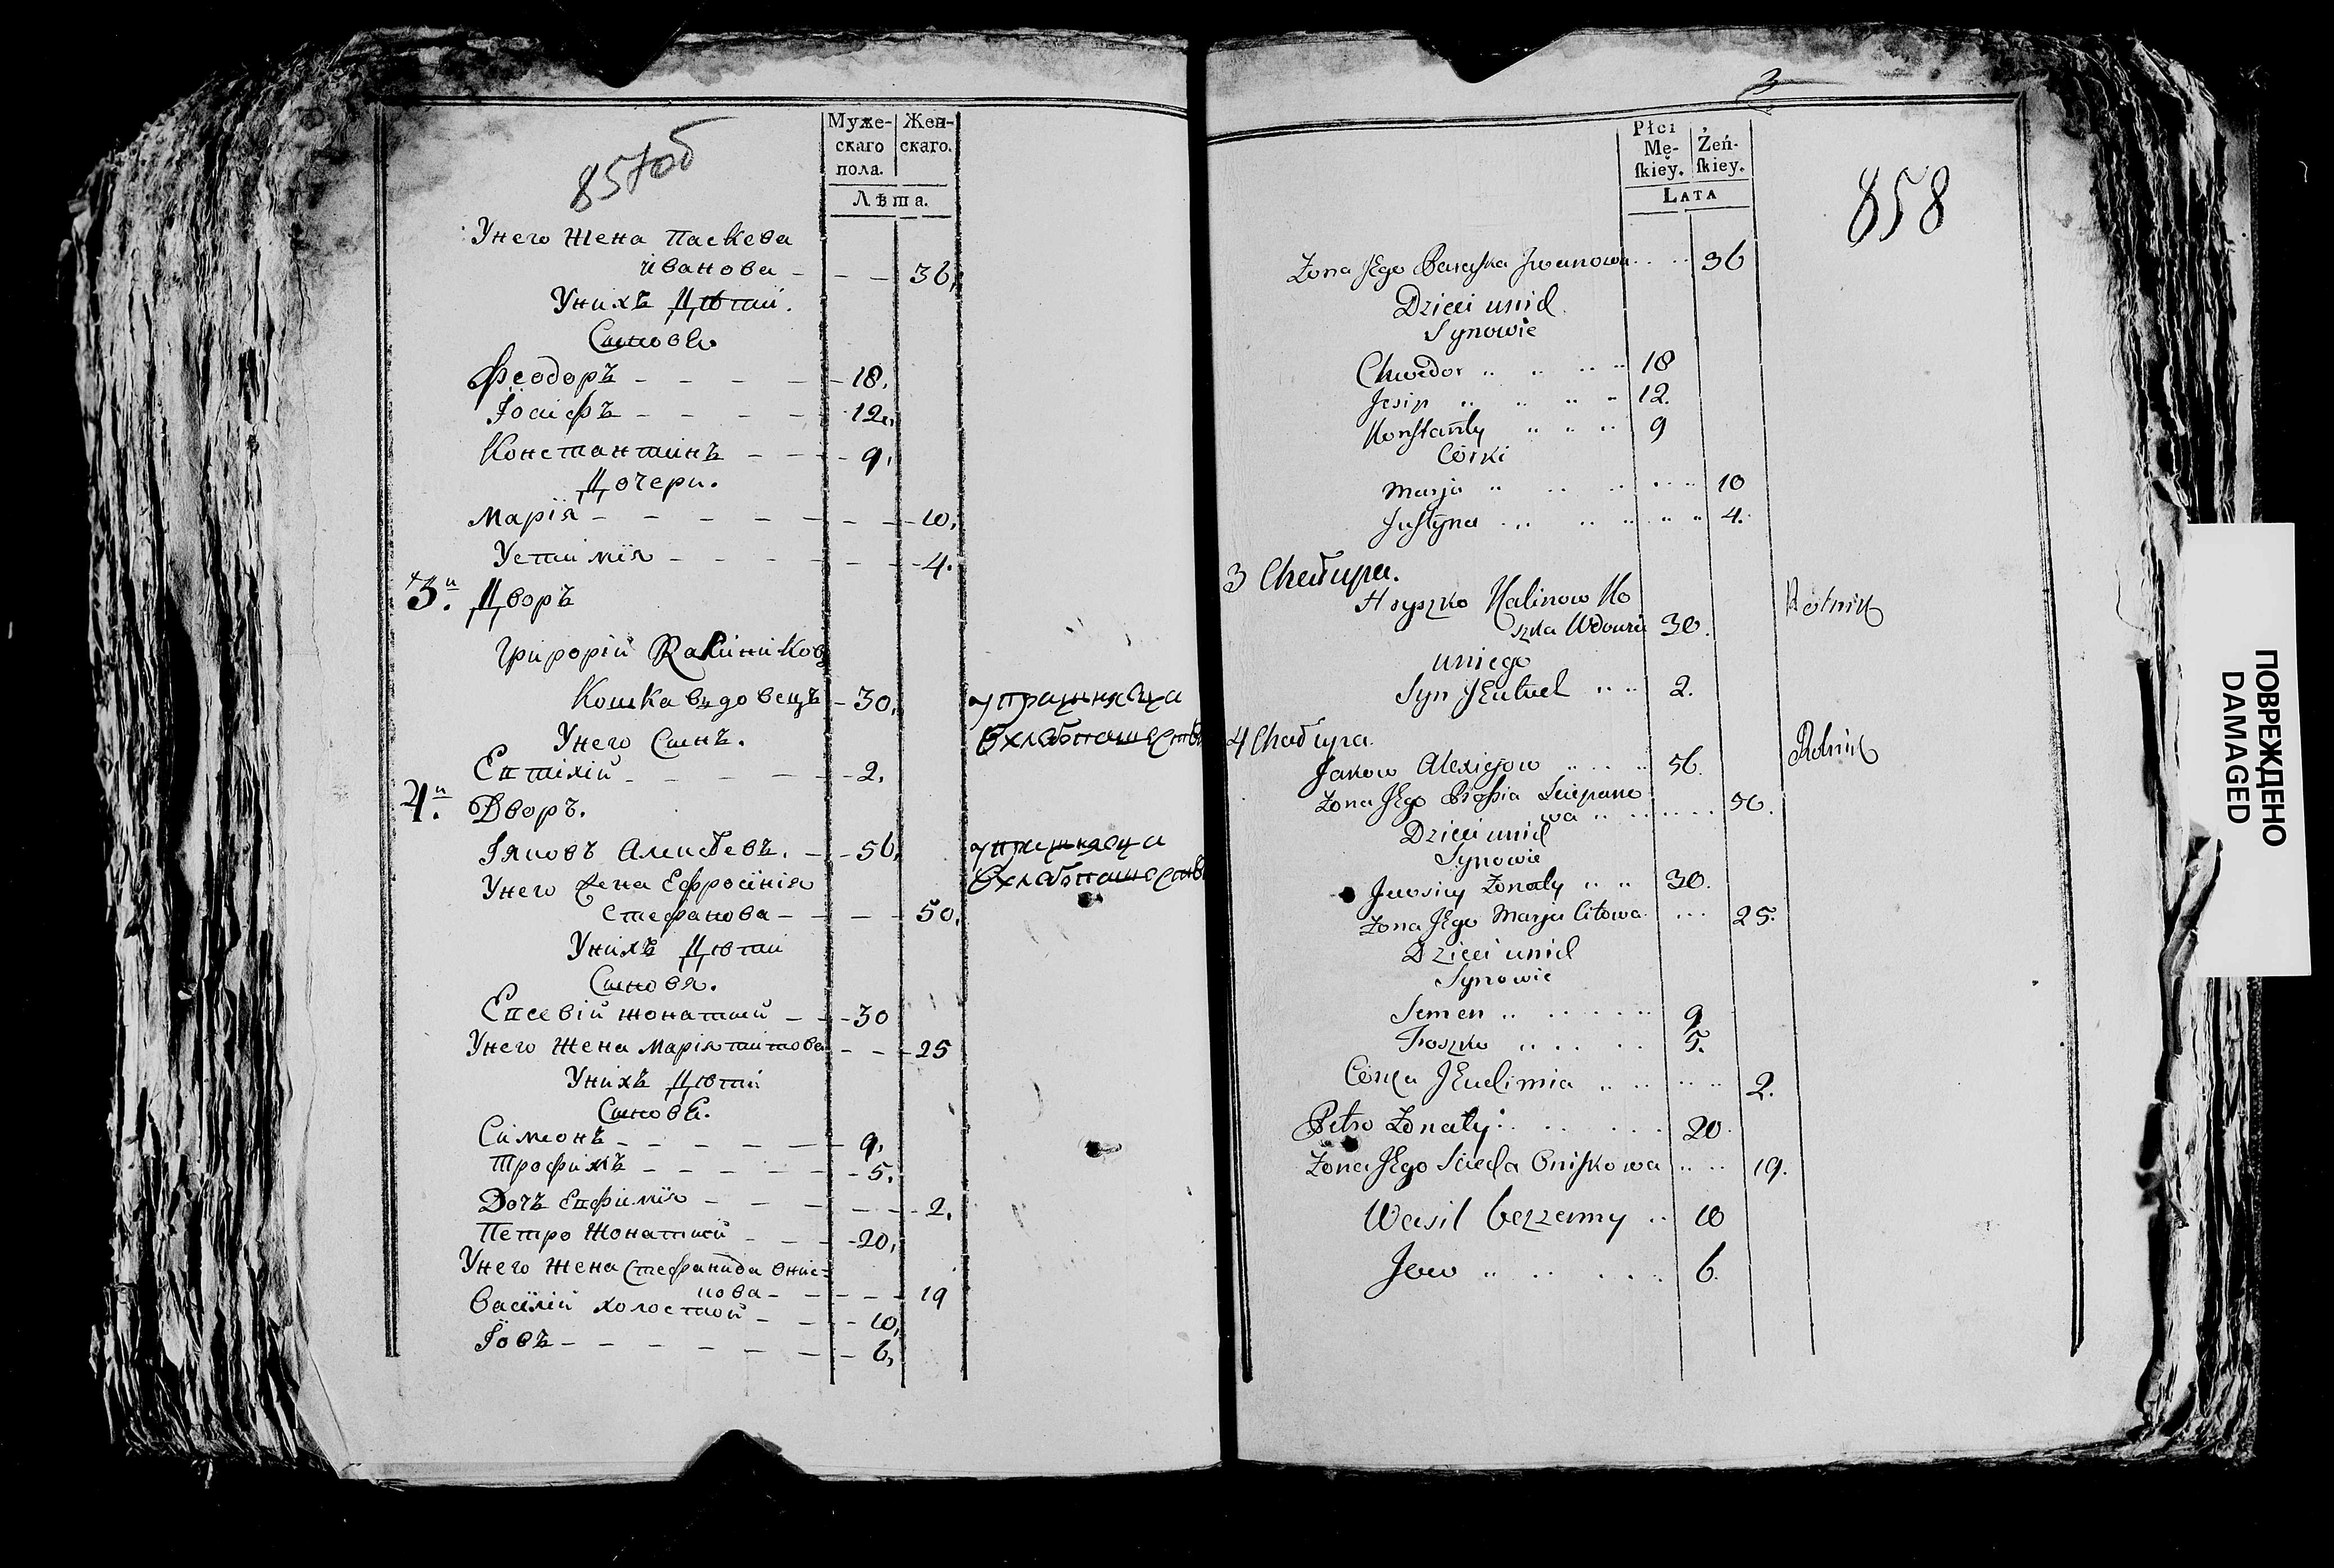 857об
Муже-
скаго
пола.
Жен-
скаго.
Лѣта.
Унего жена Паскева
иванова - - - 36,
Унихъ Дѣти.
Синовѣ
Феодоръ - - - - 18,
Іосифъ - - - - 12,
Константинъ - - - 9,
Дочери.
Марія - - - - - - 10,
Устимія - - - - - - 4.
3й. Дворъ
Григорій
Кошка вдовецъ - 30,
упражняеца
Унего Синъ.
Ептихій - - - - 2,
4й. Дворъ.
Іяковъ Алексѣевъ. - - 56,
упражняеца
Унего жена Ефросинія
Стефанова - - - 50.
Унихъ Дѣти
Синовя.
Епсевій жонатий - - 30
Унего жена Марія титова - - - 25
Унихъ Дѣти
Синовѣ.
Симеонъ - - - - - 9,
Трофимъ - - - - - 5.
Дочъ Епфимія - - - - - 2.
Петро жонатий - - - 20,
Унего жена Стефанида Онис=
кова - - - - 19
Василій холостой - - - 10,
Іовъ - - - - - - 6,
3
858
Płci
Mę-
ſkiey.
Żeń-
ſkiey.
Lata
Żona JEgo Paraska Jwanowa .. .. 36
Dzieci unich
Synowie
Chwedor .. .. .. .. 18
Jesip .. .. .. .. 12.
Konstanty .. .. .. 9
Córki
Marja .. .. .. .. .. 10
Justyna .. .. .. .. .. 4.
3 Chałupa.
Hryszko Kalinow Ko
szka Wdowiec 30.
Rolnik
uniego
Syn JEutuch .. .. 2.
4 Chałupa.
Jakow Alexiejow .. .. .. 56.
Rolnik
Żona JEgo Prosia Sciepano
wa .. .. .. .. 50.
Dzieci unich
Synowie
Jwosiey Żonaty .. .. 30.
Żona JEgo Marja Citowa ... 25.
Dzieci unich
Synowie
Semen .. .. .. .. 9
Troszko .. .. .. .. 5.
Córka JEudimia .. .. .. .. 2.
Petro Żonaty .. .. .. 20.
Żona JEgo Scieda Oniskowa .. .. 19.
Wasil bezzenny .. 10
Jow .. .. .. .. 6.
ПОВРЕЖДЕНО
DAMAGED